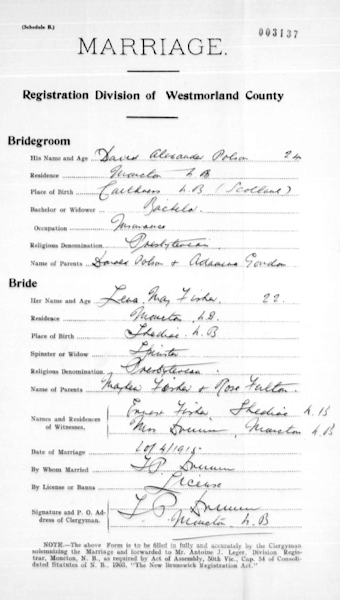 (Schedule B.)
003137
MARRIAGE.
Registration Division of Westmorland County
Bridegroom
His Name and Age David Alexander Polson 24
Residence Moncton N B
Place of Birth Caithness N.B (Scotland)
Bachelor or Widower Bachelor
Occupation Insurance
Religious Denomination Presbyterian
Name of Parents Polson & Adamina Gordon
Bride
Her Name and Age Lena May Fisher 22
Residence Moncton N.B.
Place of Birth Shediac N.B
Spinster or Widow Spinster
Religious Denomination Presbyterian
Name of Parents Fisher & Rose Fulton
Names and Residences of Witnesses, Fisher Shediac N.B
Mrs Moncton N.B
Date of Marriage 1915
By Whom Married
By License or Banns License
Signature and P. O. Address of Clergyman.
Moncton N.B
NOTE.—The above Form is to be filled in fully and accurately by the Clergyman
solemnizing the Marriage and forwarded to Mr. Antoine J. Leger, Division Regis-
trar, Moncton, N. B., as required by Act of Assembly, 50th Vic., Cap. 54 of Consoli-
dated Statutes of N. B., 1903, "The New Brunswick Registration Act."